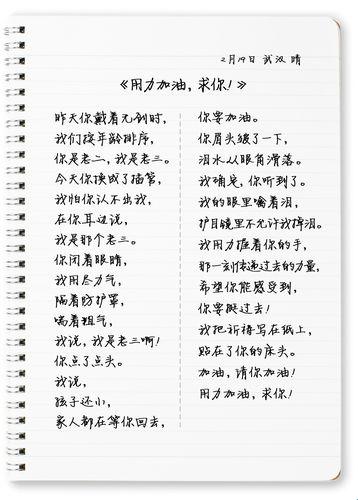 2月19日 武汉 晴
《用力加油,求你!》
昨天你戴着无创时,
我们按年龄排序,
你是老二,我是老三。
今天你换成了插管,
我怕你认不出我,
在你耳边说,
我是那个老三。
你闭着眼睛,
我用尽力气,
隔着防护罩,
喘着粗气,
我说,我是老三啊!
你点了点头。
我说,
孩子还小,
家人都在等你回去,
你要加油。
你眉头皱了一下,
泪水从眼角滑落。
我确定,你听到了。
我的眼里噙着泪,
护目镜里不允许我掉泪。
我用力握着你的手,
那一刻传递过去的力量,
希望你能感受到,
你要挺过去!
我把祈祷写在纸上,
贴在了你的床头。
加油,请你加油!
用力加油,求你!